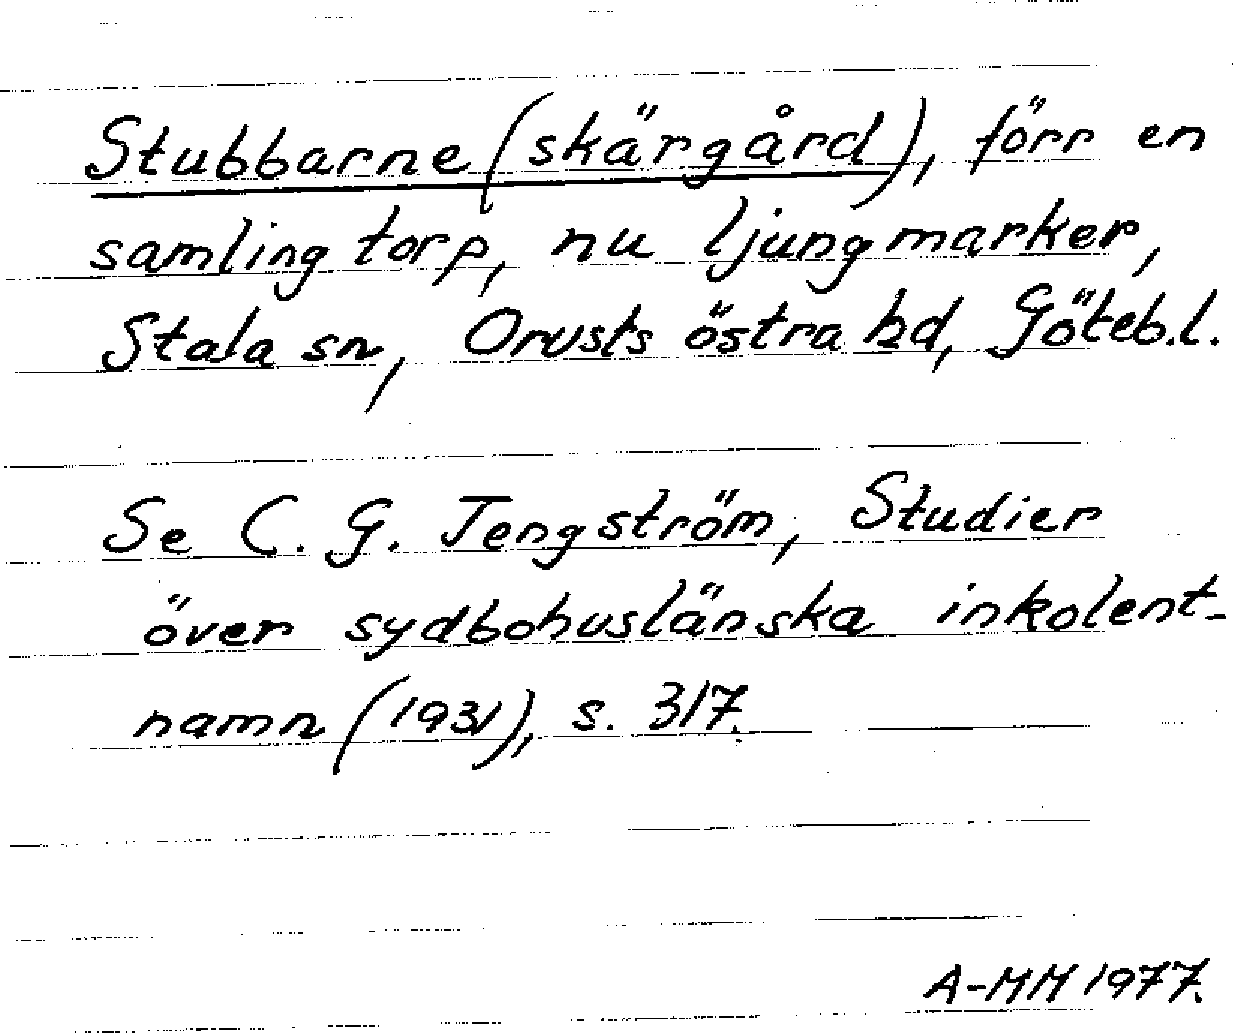 Stubbarne (skärgård), förr en
samling torp, nu ljungmarker,
Stala sn, Orusts östra hd, Göteb.l.
Se C. G. Tengström, Studier
över sydbohuslänska inkolent-
namn (1931), s. 317.
A-MM 1977.